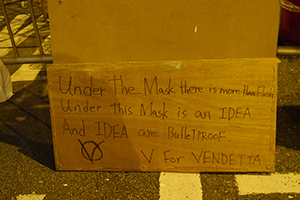 Under The Mask there is more than Flesh
Under this Mask is an IDEA
And IDEA are BulleTPROOF
V For VENDETTA